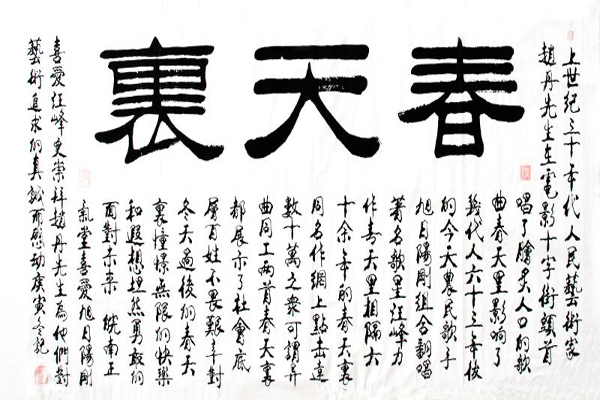 春天裏
上世纪三十年代人民藝術家
趙丹先生在電影十字街頭首
唱了膾炙人口的歌
曲春天里影响了
幾代人六十三年後
的今天農民歌手
旭日陽剛组合翻唱
著名歌星汪峰力
作春天里相隔六
十余年的春天裏
同名作網上點击達
數十萬之衆可謂异
曲同工两首春天裏
都展示了社會底
層百姓不畏艱辛對
冬天過後的春天
裏憧憬無限的快樂
和遐想坦然勇敢的
面對未来 皖南正
氣堂喜愛旭日陽剛
喜愛汪峰更崇拜趙丹先生為他們對
藝術追求的真誠而感动庚寅冬記